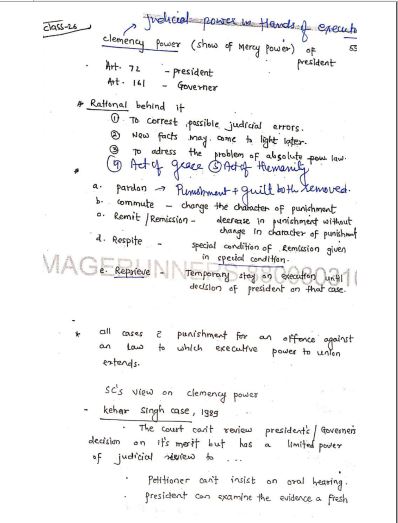 Class-26
Judicial power in Hands of executo
clemency power (show of Mercy power) of president
53
Art. 72 - president
Art. 161 - Governer
* Rational behind it
① To correst possible judicial errors.
② New facts may come to light later.
③ To adress the problem of absolute law.
④ Act of grace ⑤ Act of Humanity
a. pardon → Punishment + guilt both removed.
b. commute - change the character of punishment
c. Remit / Remission - decrease in punishment without change in character of punishment
d. Respite - special condition of Remission given in special condition.
e. Reprieve - Temporary stay on execution until decision of president on that case.
* all cases ē punishment for an offence against
an law to which executive power to union
extends.
SC's view on clemency power
- kehar singh case, 1989
• The court can't review president's / Governers
decision on it's merit but has a limited power
of judicial review to ...
• Petitioner can't insist on oral hearing.
• president can examine the evidence a fresh